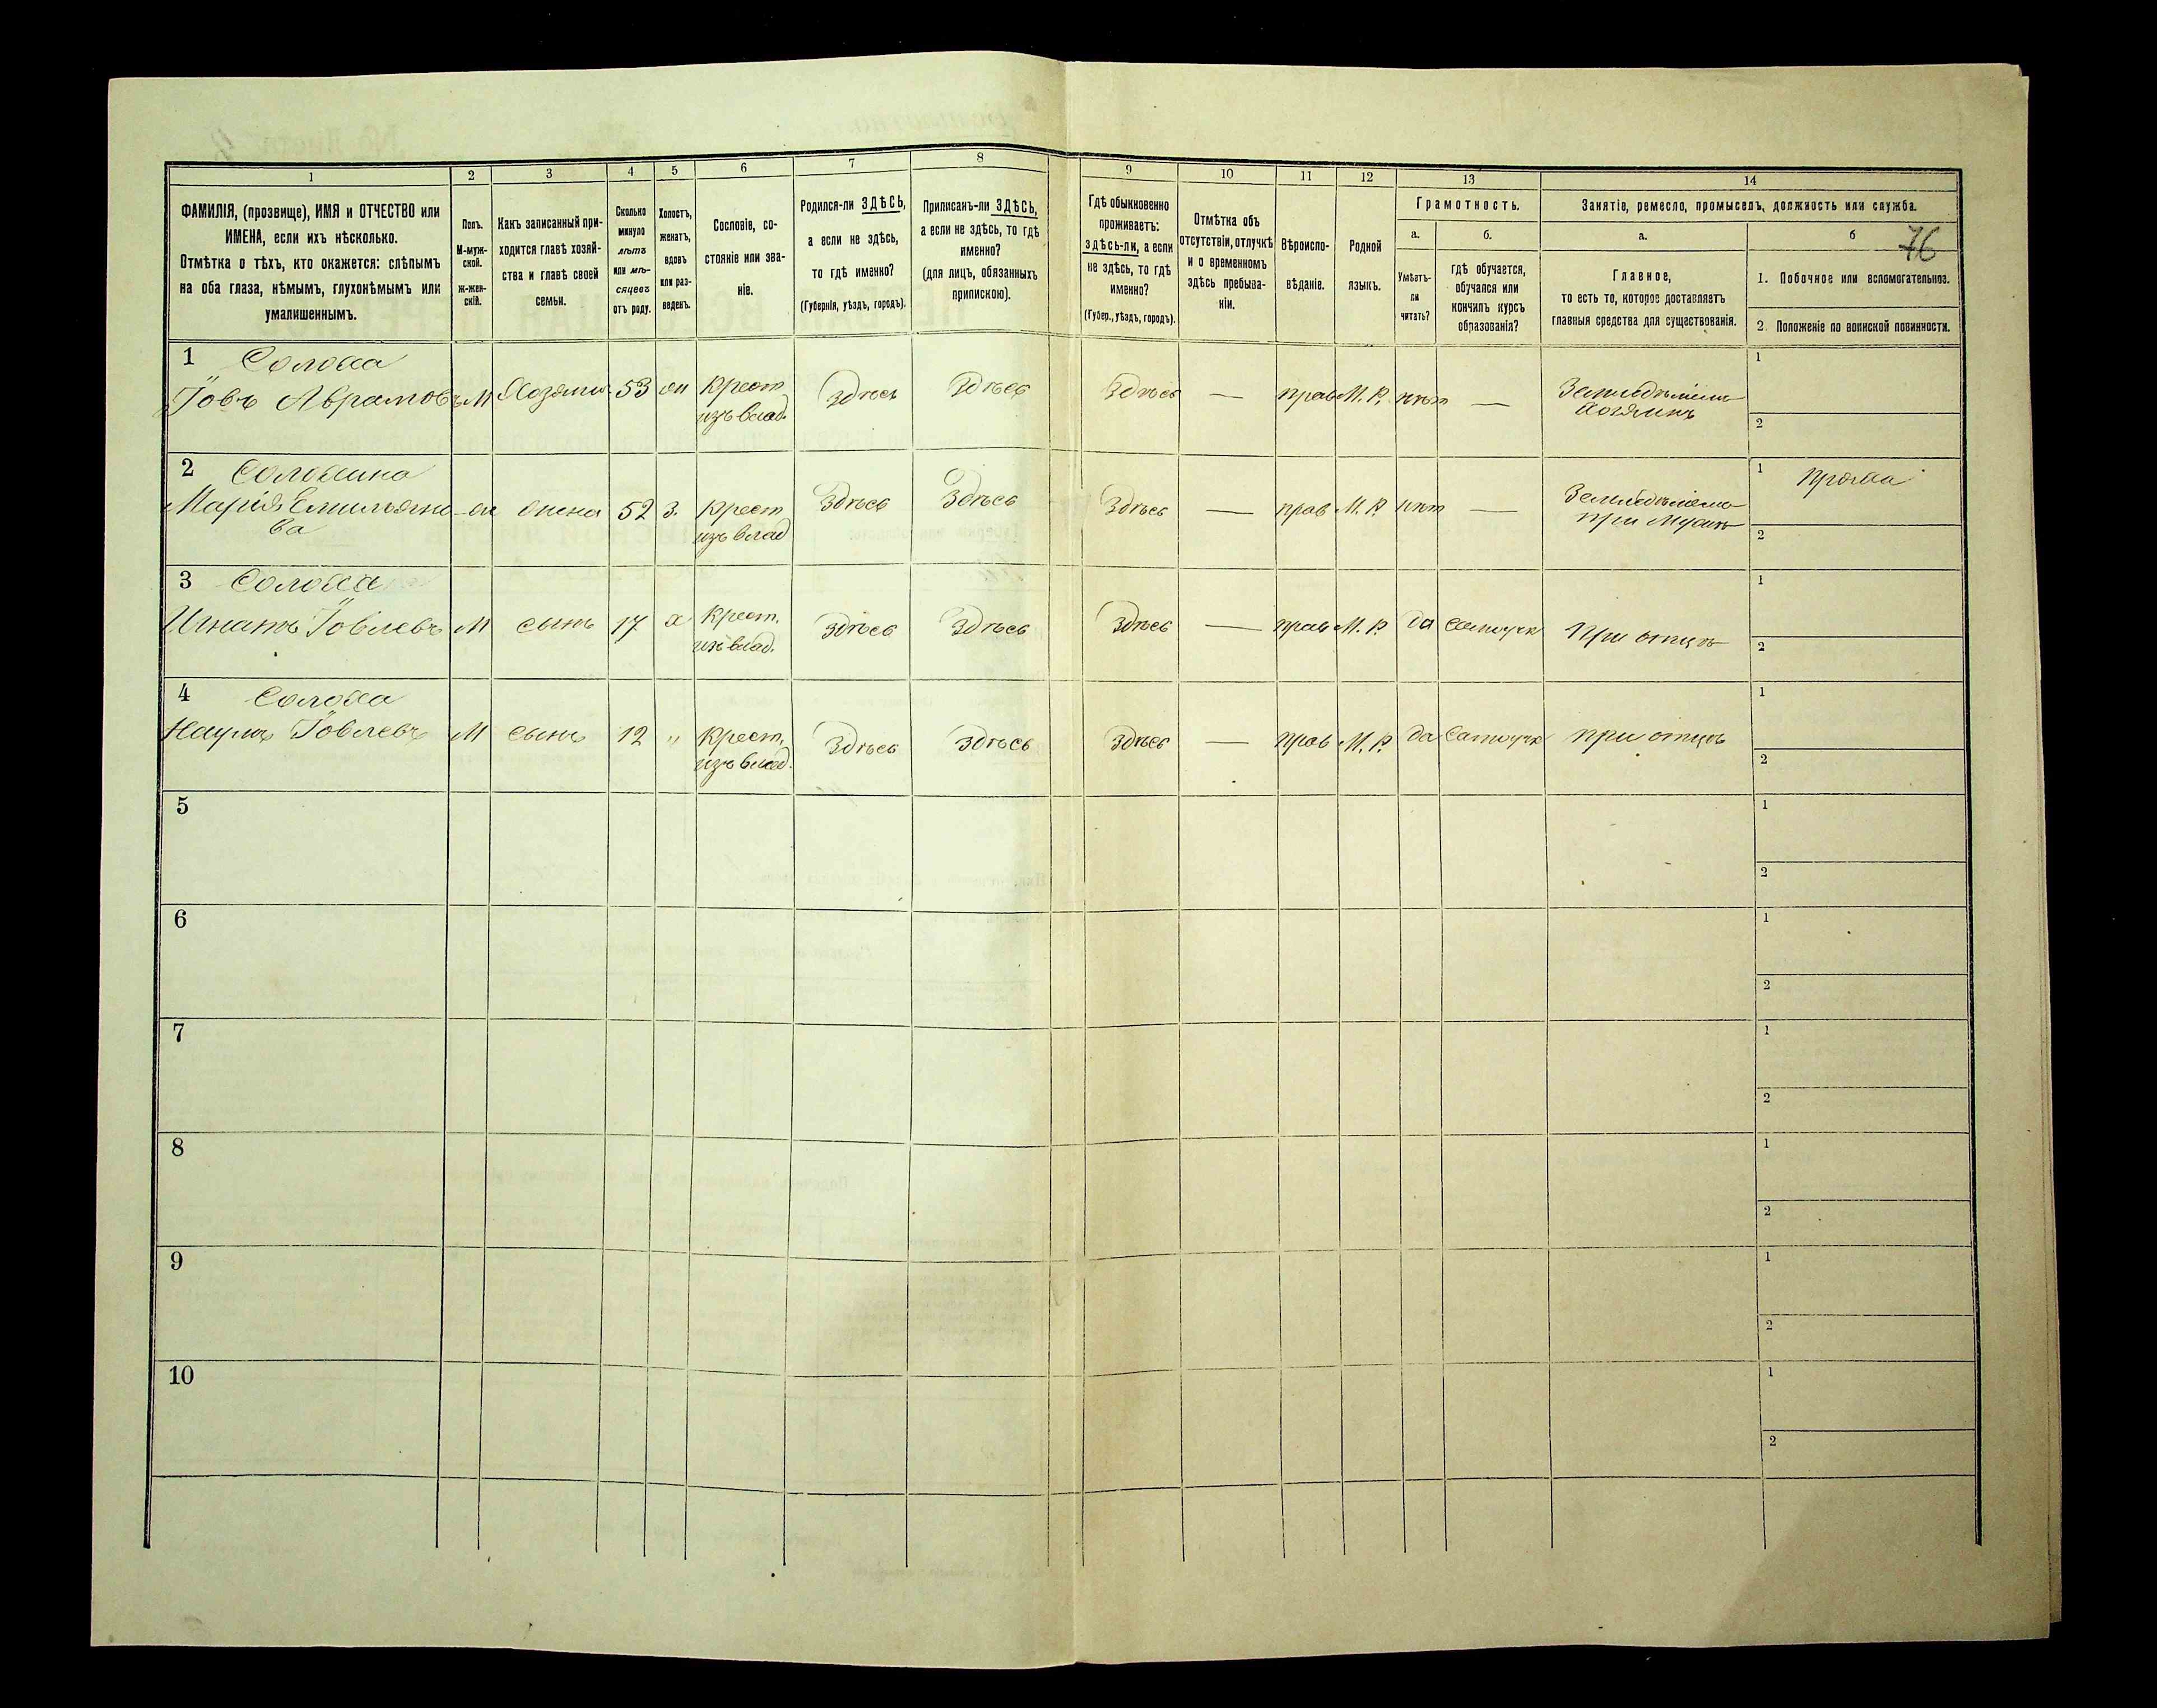 76
1 2 3 4 5 6 7 8 9 10 11 12 13 14
ФАМИЛІЯ, (прозвище), ИМЯ и ОТЧЕСТВО или
ИМЕНА, если ихъ нѣсколько.
Отмѣтка о тѣхъ, кто окажется: слѣпымъ
на оба глаза, нѣмымъ, глухонѣмымъ или
умалишеннымъ.
Полъ.
М-муж-
ской.
ж-жен-
скій.
Какъ записанный при-
ходится главѣ хозяй-
ства и главѣ своей
семьи.
Сколько
минуло
лѣтъ
или мѣ-
сяцевъ
отъ роду.
Холостъ,
женатъ,
вдовъ
или раз-
веденъ.
Сословіе, со-
стояніе или зва-
ніе.
Родился-ли ЗДѢСЬ,
а если не здѣсь,
то гдѣ именно?
(Губернія, уѣздъ, городъ).
Приписанъ-ли ЗДѢСЬ,
а если не здѣсь, то гдѣ
именно?
(для лицъ, обязанныхъ
припискою).
Гдѣ обыкновенно
проживаетъ:
здѣсь-ли, а если
не здѣсь, то гдѣ
именно?
(Губер., уѣздъ, городъ).
Отмѣтка объ
отсутствіи, отлучкѣ
и о временномъ
здѣсь пребыва-
ніи.
Вѣроиспо-
вѣданіе.
Родной
языкъ.
Грамотность.
а.
Умѣетъ-
ли
читать?
б.
гдѣ обучается,
обучался или
кончилъ курсъ
образованія?
Занятіе, ремесло, промыселъ, должность или служба.
а.
Главное,
то есть то, которое доставляетъ
главныя средства для существованія.
б
1. Побочное или вспомогательное.
2. Положеніе по воинской повинности.
1 Солоха
Іовъ Аврамовъ М Хозяинъ 53 ж Крест. изъ влад. Здѣсь Здѣсь Здѣсь — прав М. Р. нѣт —
хозяинъ
1
2
2 Солохина
Марія Емильяно-
ва ж жена 52 з. Крест изъ влад Здѣсь Здѣсь Здѣсь — прав М. Р. нѣт —
при мужѣ
1 Пряха
2
3 Солоха
Игнатъ Іовлевъ М сынъ 17 х Крест. изъ влад. Здѣсь Здѣсь Здѣсь — прав М. Р. да самоучк при отцѣ
1
2
4 Солоха
Наумъ Іовлевъ М сынъ 12 " Крест. изъ влад. Здѣсь Здѣсь Здѣсь — прав М. Р. да самоучк при отцѣ
1
2
5
1
2
6
1
2
7
1
2
8
1
2
9
1
2
10
1
2